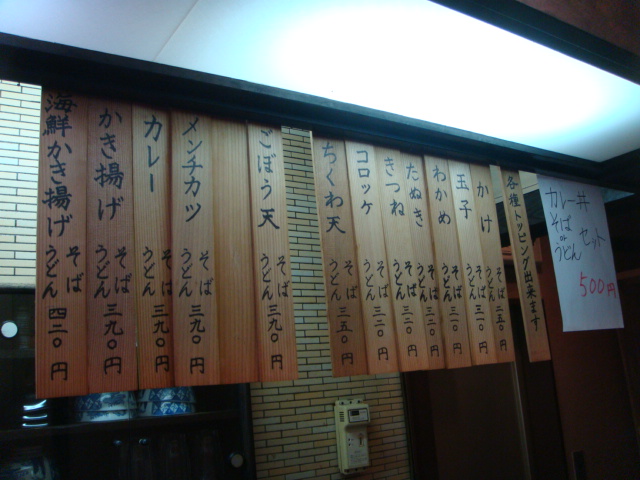 カレー丼
そば
or
うどん
セット
500円
各種トッピング出来ます
かけ そば うどん 二五〇円
玉子 そば うどん 三一〇円
わかめ そば うどん 三二〇円
たぬき そば うどん 三二〇円
きつね そば うどん 三二〇円
コロッケ そば うどん 三二〇円
ちくわ天 そば うどん 三五〇円
ごぼう天 そば うどん 三九〇円
メンチカツ そば うどん 三九〇円
カレー そば うどん 三九〇円
かき揚げ そば うどん 三九〇円
海鮮かき揚げ そば うどん 四二〇円